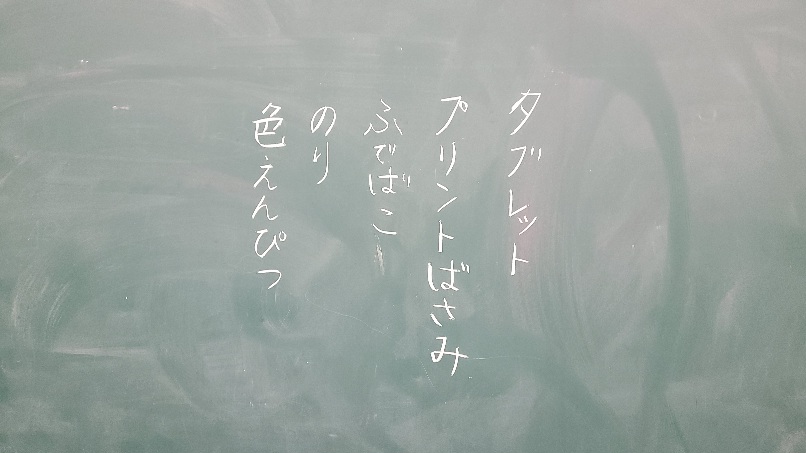 タブレット
プリントばさみ
ふでばこ
のり
色えんぴつ